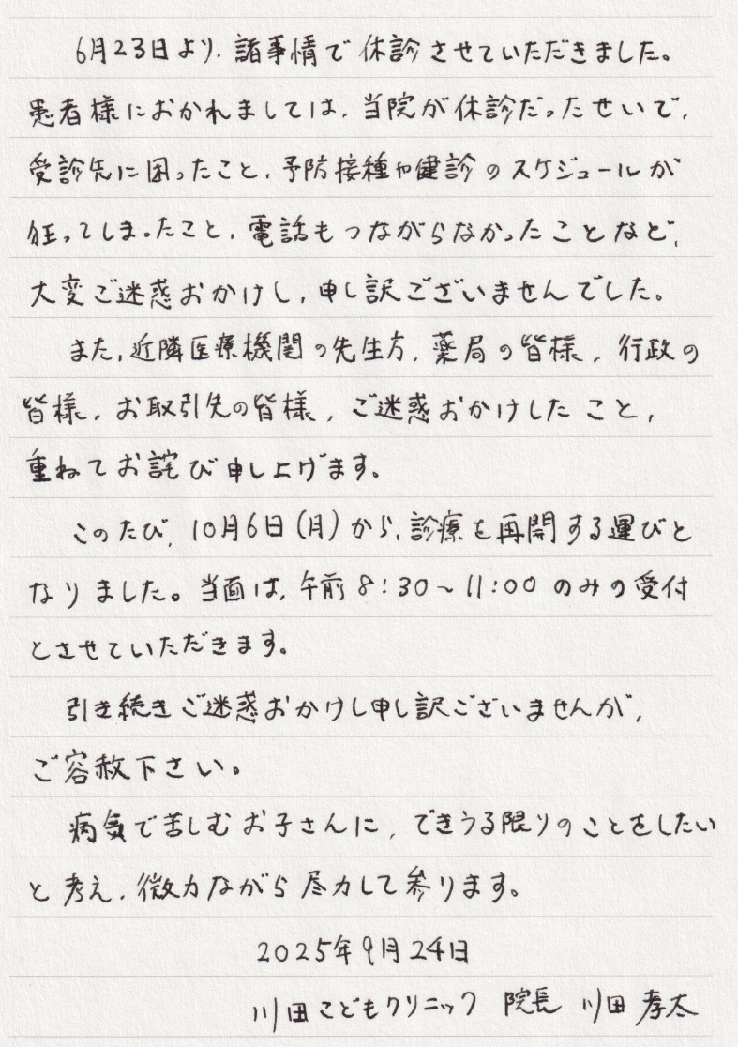 6月23日より、諸事情で休診させていただきました。
患者様におかれましては、当院が休診だったせいで、
受診先に困ったこと、予防接種や健診のスケジュールが
狂ってしまったこと、電話もつながらなかったことなど、
大変ご迷惑おかけし、申し訳ございませんでした。
また、近隣医療機関の先生方、薬局の皆様、行政の
皆様、お取引先の皆様、ご迷惑おかけしたこと、
重ねてお詫び申し上げます。
このたび、10月6日(月)から、診療を再開する運びと
なりました。当面は、午前8:30~11:00のみの受付
とさせていただきます。
引き続きご迷惑おかけし申し訳ございませんが、
ご容赦下さい。
病気で苦しむお子さんに、できうる限りのことをしたい
と考え、微力ながら尽力して参ります。
2025年9月24日
川田こどもクリニック 院長 川田孝太